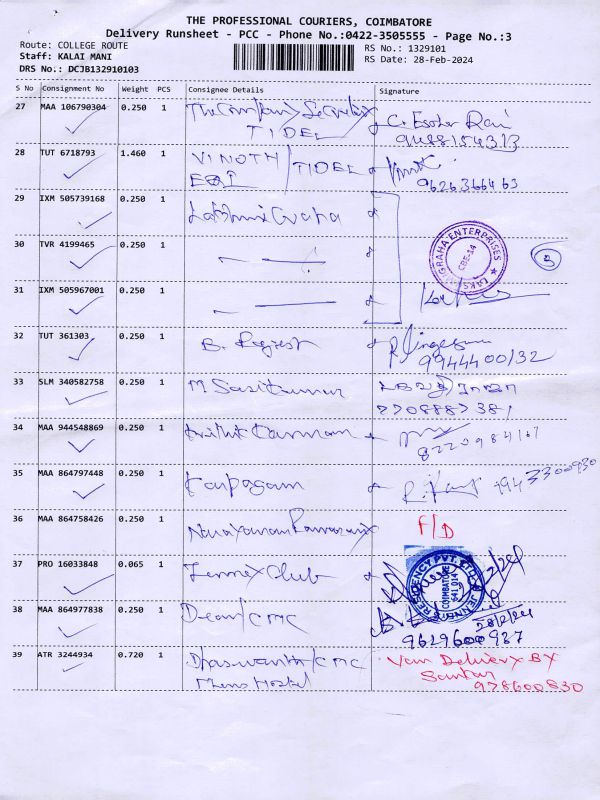 THE PROFESSIONAL COURIERS, COIMBATORE
Delivery Runsheet - PCC - Phone No.:0422-3505555 - Page No.:3
Route: COLLEGE ROUTE
RS No.: 1329101
Staff: KALAI MANI
RS Date: 28-Feb-2024
DRS No.: DCJB132910103
S No Consignment No Weight PCS Consignee Details Signature
27 MAA 106790304 0.250 1 The Company Secretary
TIDEL
9488154313
28 TUT 6718793 1.460 1 VINOTH / TIDEL
9626366463
29 IXM 505739168 0.250 1 Lakshmi Graha
30 TVR 4199465 0.250 1
ENTERPRISES
CBE-14
31 IXM 505967001 0.250 1
32 TUT 361303 0.250 1 B. Rajesh
9944400132
33 SLM 340582758 0.250 1 M Sasikumar
7708887381
34 MAA 944548869 0.250 1
8220984167
35 MAA 864797448 0.250 1 Karpagam
36 MAA 864758426 0.250 1 F/D
37 PRO 16033848 0.065 1 Club
RESIDENCY PVT. LTD.
COIMBATORE
641 014
38 MAA 864977838 0.250 1 Dean / CMC
28/2/24
9629600927
39 ATR 3244934 0.720 1 Dhaswanth / CMC
Mens Hostel
Van Delivery BY
978600830